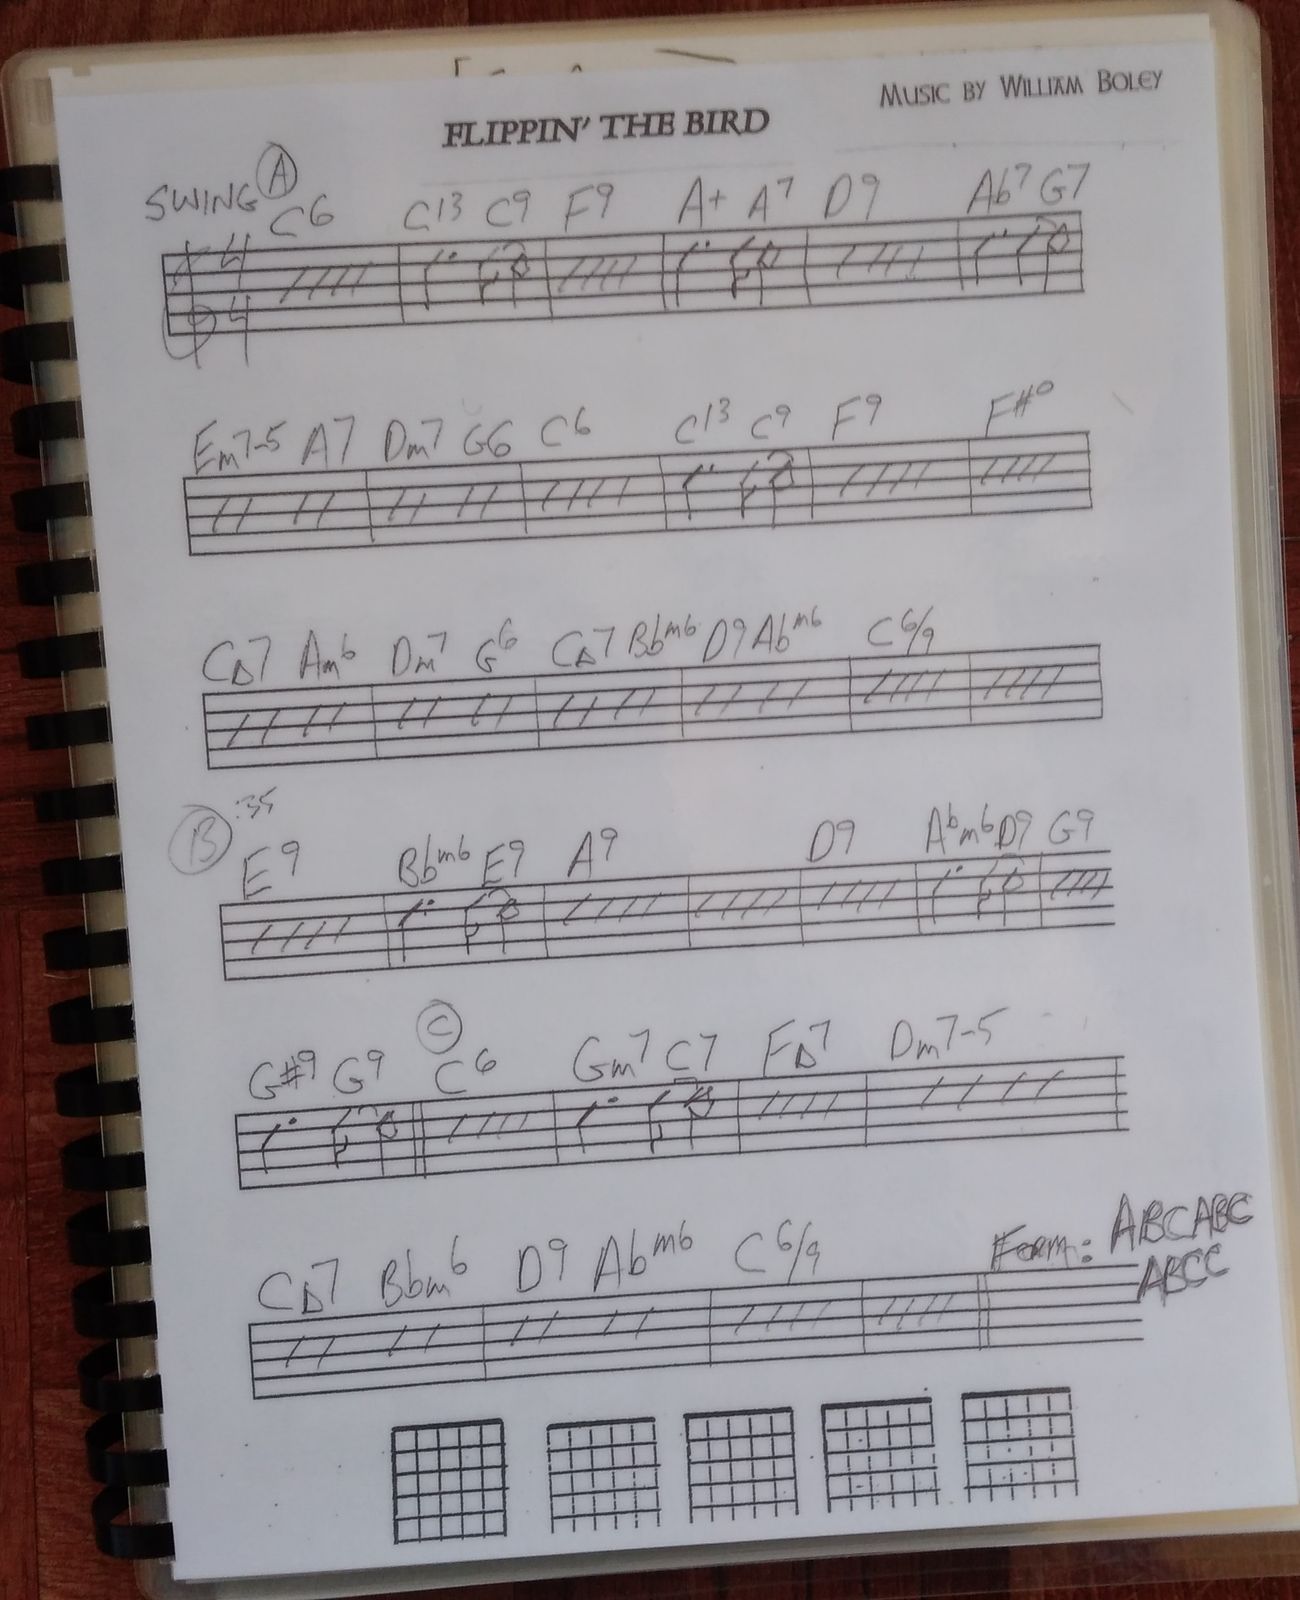 MUSIC BY WILLIAM BOLEY
FLIPPIN' THE BIRD
SWING A
C6 C13 C9 F9 A+ A7 D9 Ab7 G7
4
4
Em7-5 A7 Dm7 G6 C6 C13 C9 F9 F#°
C△7 Am6 Dm7 G6 C△7 Bbm6 D9 Abm6 C6/9
B :35
E9 Bbm6 E9 A9 D9 Abm6 D9 G9
C
G#9 G9 C6 Gm7 C7 F△7 Dm7-5
C△7 Bbm6 D9 Abm6 C6/9 Form: ABCABC
ABCC